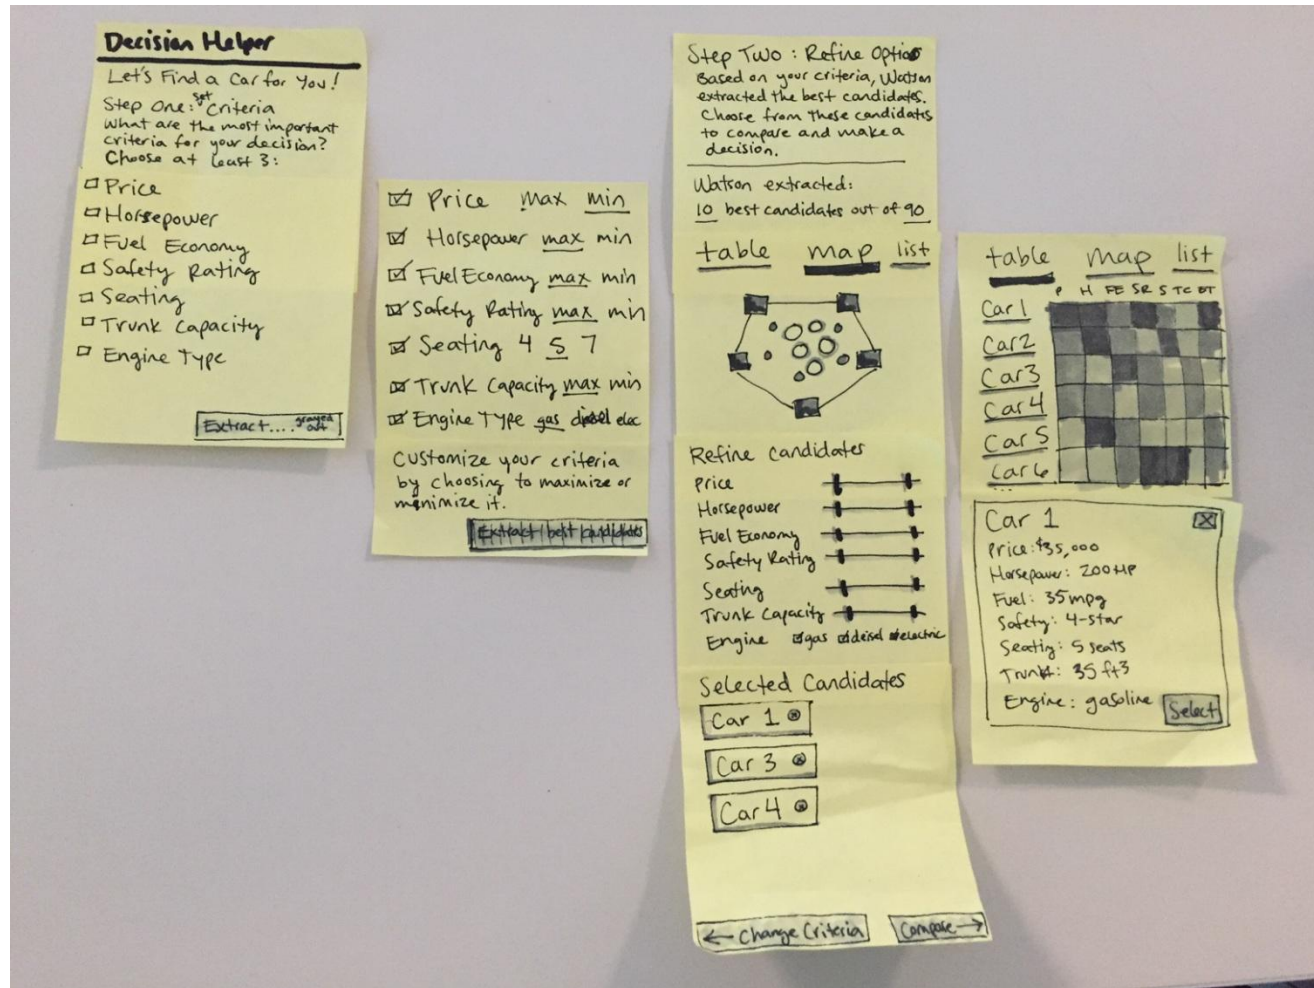 Decision Helper
Let's Find a Car for You!
Step One: set Criteria
What are the most important
criteria for your decision?
Choose at least 3:
Price
Horsepower
Fuel Economy
Safety Rating
Seating
Trunk Capacity
Engine Type
Extract.... grayed out
Price max min
Horsepower max min
Fuel Economy max min
Safety Rating max min
Seating 4 5 7
Trunk Capacity max min
Engine Type gas diesel elec
Customize your criteria
by choosing to maximize or
minimize it.
Extract best candidates
Step Two: Refine Options
Based on your criteria, Watson
extracted the best candidates.
Choose from these candidates
to compare and make a
decision.
Watson extracted:
10 best candidates out of 90
table map list
Refine Candidates
Price
Horsepower
Fuel Economy
Safety Rating
Seating
Trunk Capacity
Engine gas deisel electric
Selected Candidates
Car 1
Car 3
Car 4
← Change Criteria
Compare →
table map list
P H FE SR S TC ET
Car 1
Car 2
Car 3
Car 4
Car 5
Car 6
...
Car 1
Price: $35,000
Horsepower: 200 HP
Fuel: 35 mpg
Safety: 4-star
Seating: 5 seats
Trunk: 35 ft3
Engine: gasoline
Select